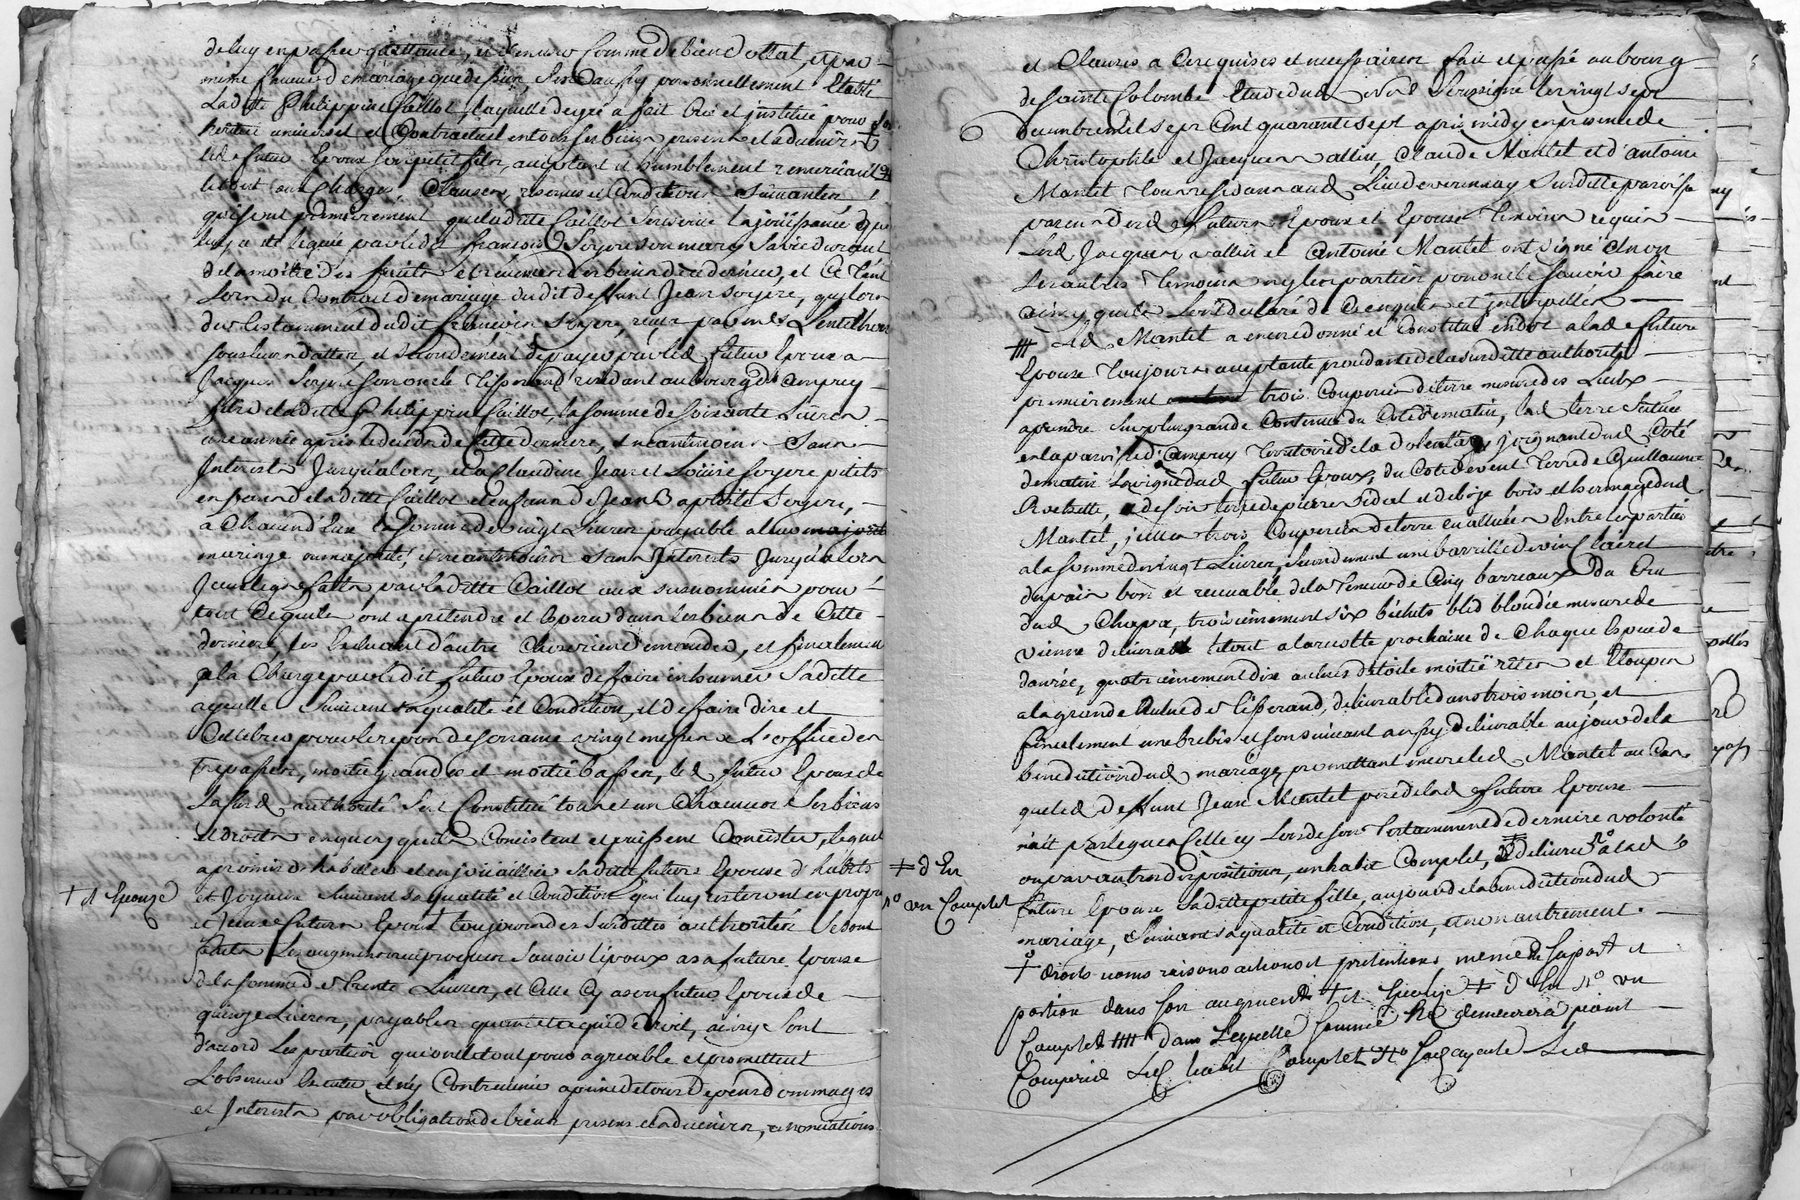 de luy en passer quittance, et demeure comme de bien dottal, et par
mime faveur de mariage que dessus, s'est aussy personnellement Etablie
Ladite Philippine Caillot, laquelle de gré a fait créé et institué pour son
heritier universel et Contractuel en tous ses biens presens et a venir
led futur Epoux son petit fils, acceptant et humblement remerciant
le tout aux Charges, Clauses, reserves et Conditions suivantes
qui sont premierement que ladite Caillot se reserve la jouissance
luy a été leguée par led françois Soyere son mary sa vie durant
de la moitié des fruits et revenus des biens de ce dernier, et ce
Lors du Contract de mariage dudit deffunt Jean Soyere, qu'lors
du testament dudit françois Soyere, reçus par mes
sous leurs dattes et secondement de payer par led futur Epoux a
Jacques Soyere son oncle Tisserand residant au bourg d'Ampuy
fils de ladite Philippine Caillot, la somme de soixante Livres
une année après le décès de cette derniere, et neantmoins sans
Interests Jusqu'alors, et a Claudine Jean et Louise Soyere petits
enfans de ladite Caillot et enfans de Jean Baptiste Soyere,
a Chacun d'eux la somme de vingt Livres payable a leur
mariage ou majorité, et neantmoins sans Interests Jusqu'alors
Iceux legs faits par ladite Caillot aux susnommés pour
tout Ce qu'ils ont a pretendre et Esperer dans les biens de Cette
derniere les excluant d'autre Chose rien demander, et finalement
a la Charge par ledit futur Epoux de faire inhumer Sa dite
ayeulle suivant sa qualité et Condition, et de faire dire et
Cellebrer pour le repos de son ame vingt messes L'office des
trepassés, moitié grandes et moitié basses, led futur Epoux de
la susd authorité s'est Constitué tous et un Chacuns Ses biens
et droits en quoy qu'ils Consistent et puissent Consister, lequel
a promis d'habiller et enjoüailler Sadite future Epouse d'habits
et Joyaux suivant sa qualité et Condition qui luy resteront en propre
† et Epouze
et Iceux futurs Epoux toujours des susdittes authorités se sont
faits Les augments reciproques savoir l'epoux a sa future Epouse
de la somme de trente Livres, et Cette Cy a son futur Epoux de
quinze Livres, payables quant et a qui de droit, ainsy se sont
d'accord Les parties qui ont le tout pour agreable et promettent
L'observer et n'y Contrevenir a peine de tous depens dommages
et Interests par obligation de biens presens et a venir, renonciations
et Clauses a Ce requises et necessaires fait et passé au bourg
de sainte Colombe Etude dud nore soussigné le vingt sept
mil sept Cent quarante sept apres midy en presence de
Christophle et Jacques vallin, Claude Mantel et d'antoine
Mantel tous residans aud Lieu de verennay susditte paroisse
parens desd futurs Epoux et Epouse temoins requis
Lesd Jacques vallin et Antoine Mantel ont signé et non
Les autres temoins ny les parties pour ne le sçavoir faire
ainsy qu'ils L'ont déclaré de Ce enquis et interpellés
Led Mantel a encore donné et Constitué en dot a lad future
Epouse toujours acceptante procedante de la susditte authorité
premierement trois Couperées de terre mesure des Lieux
a prendre sur plus grande Contenue du Coté de matin, lad terre située
en la paroisse d'Ampuy territoire de la joignant dud Coté
de matin La vigne dud futur Epoux, du Coté de vent terre de Guillaume
Rochette, de soir terre de pierre vidal et de bize bois et hermage dud
Mantel, Icelles trois Couperées de terre evaluées Entre les parties
a la somme de vingt Livres, secondement une barrille de vin Clairet
du pais bon et recevable de la teneur de Cinq barreaux du Cru
dud Chapa, troisiemement six bichets bled blondée mesure de
vienne delivrable le tout a la recolte prochaine de Chaque Espece de
danrée, quatriemement dix aulnes de toile moitié rites et Etoupes
a la grande Aulne de tisserand, delivrable dans trois mois, et
finalement une brebis et son suivant aussy delivrable au jour de la
benediction dud mariage, promettant encore led Mantel au Cas
que led deffunt Jean Mantel pere de lad future Epouse
n'ait pas legué a Celle Cy Lors de son testamment de derniere volonté
ou par autres dispositions, un habit Complet, delivrer a lad
‡ d En
n° un Complet
future Epouse Sa dite petite fille, au jour de la benediction dud
mariage, suivant sa qualité et Condition, et non autrement.
† droits noms raisons actions et pretentions, même de sa part et
portion dans son augment † et Epouze ‡ d En n° un
Complet dans Laquelle somme demeurera point
Comprise Led habit Complet